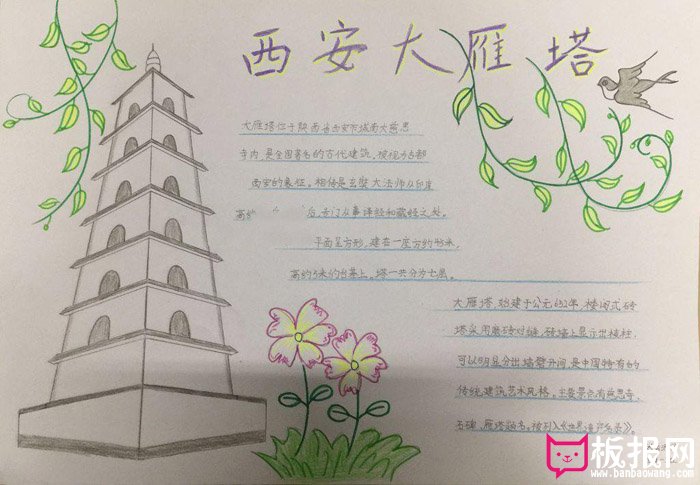 西安大雁塔
大雁塔位于陕西省西安市城南大慈恩
寺内,是全国著名的古代建筑,被视为古都
西安的象征。相传是玄奘大法师从印度
后,专门从事译经和藏经之处。
平面呈方形,建在一座方约45米,
高约5米的台基上。塔一共分为七层。
大雁塔,始建于公元652年,楼阁式砖
塔采用磨砖对缝,砖墙上显示出棱柱,
可以明显分出墙壁开间,是中国特有的
传统建筑艺术风格。主要景点有慈恩寺,
石碑,雁塔
板报网
www.banbaowang.com